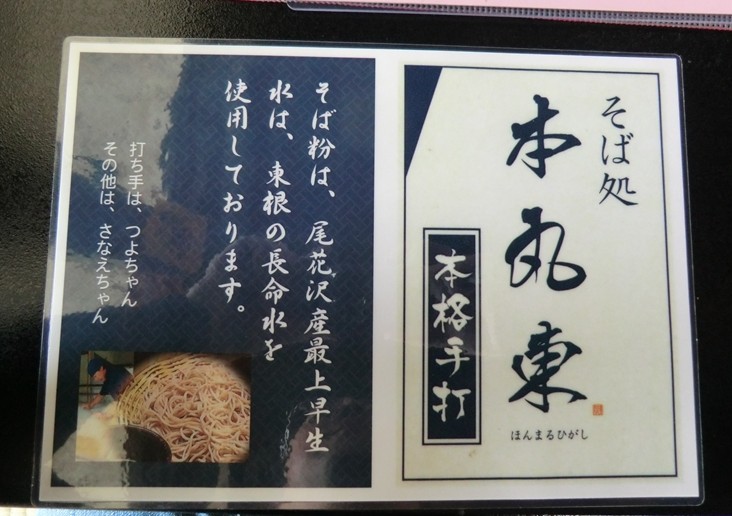 そば処
本丸東
ほんまるひがし
本格手打
そば粉は、尾花沢産最上早生
水は、東根の長命水を
使用しております。
打ち手は、つよちゃん
その他は、さなえちゃん